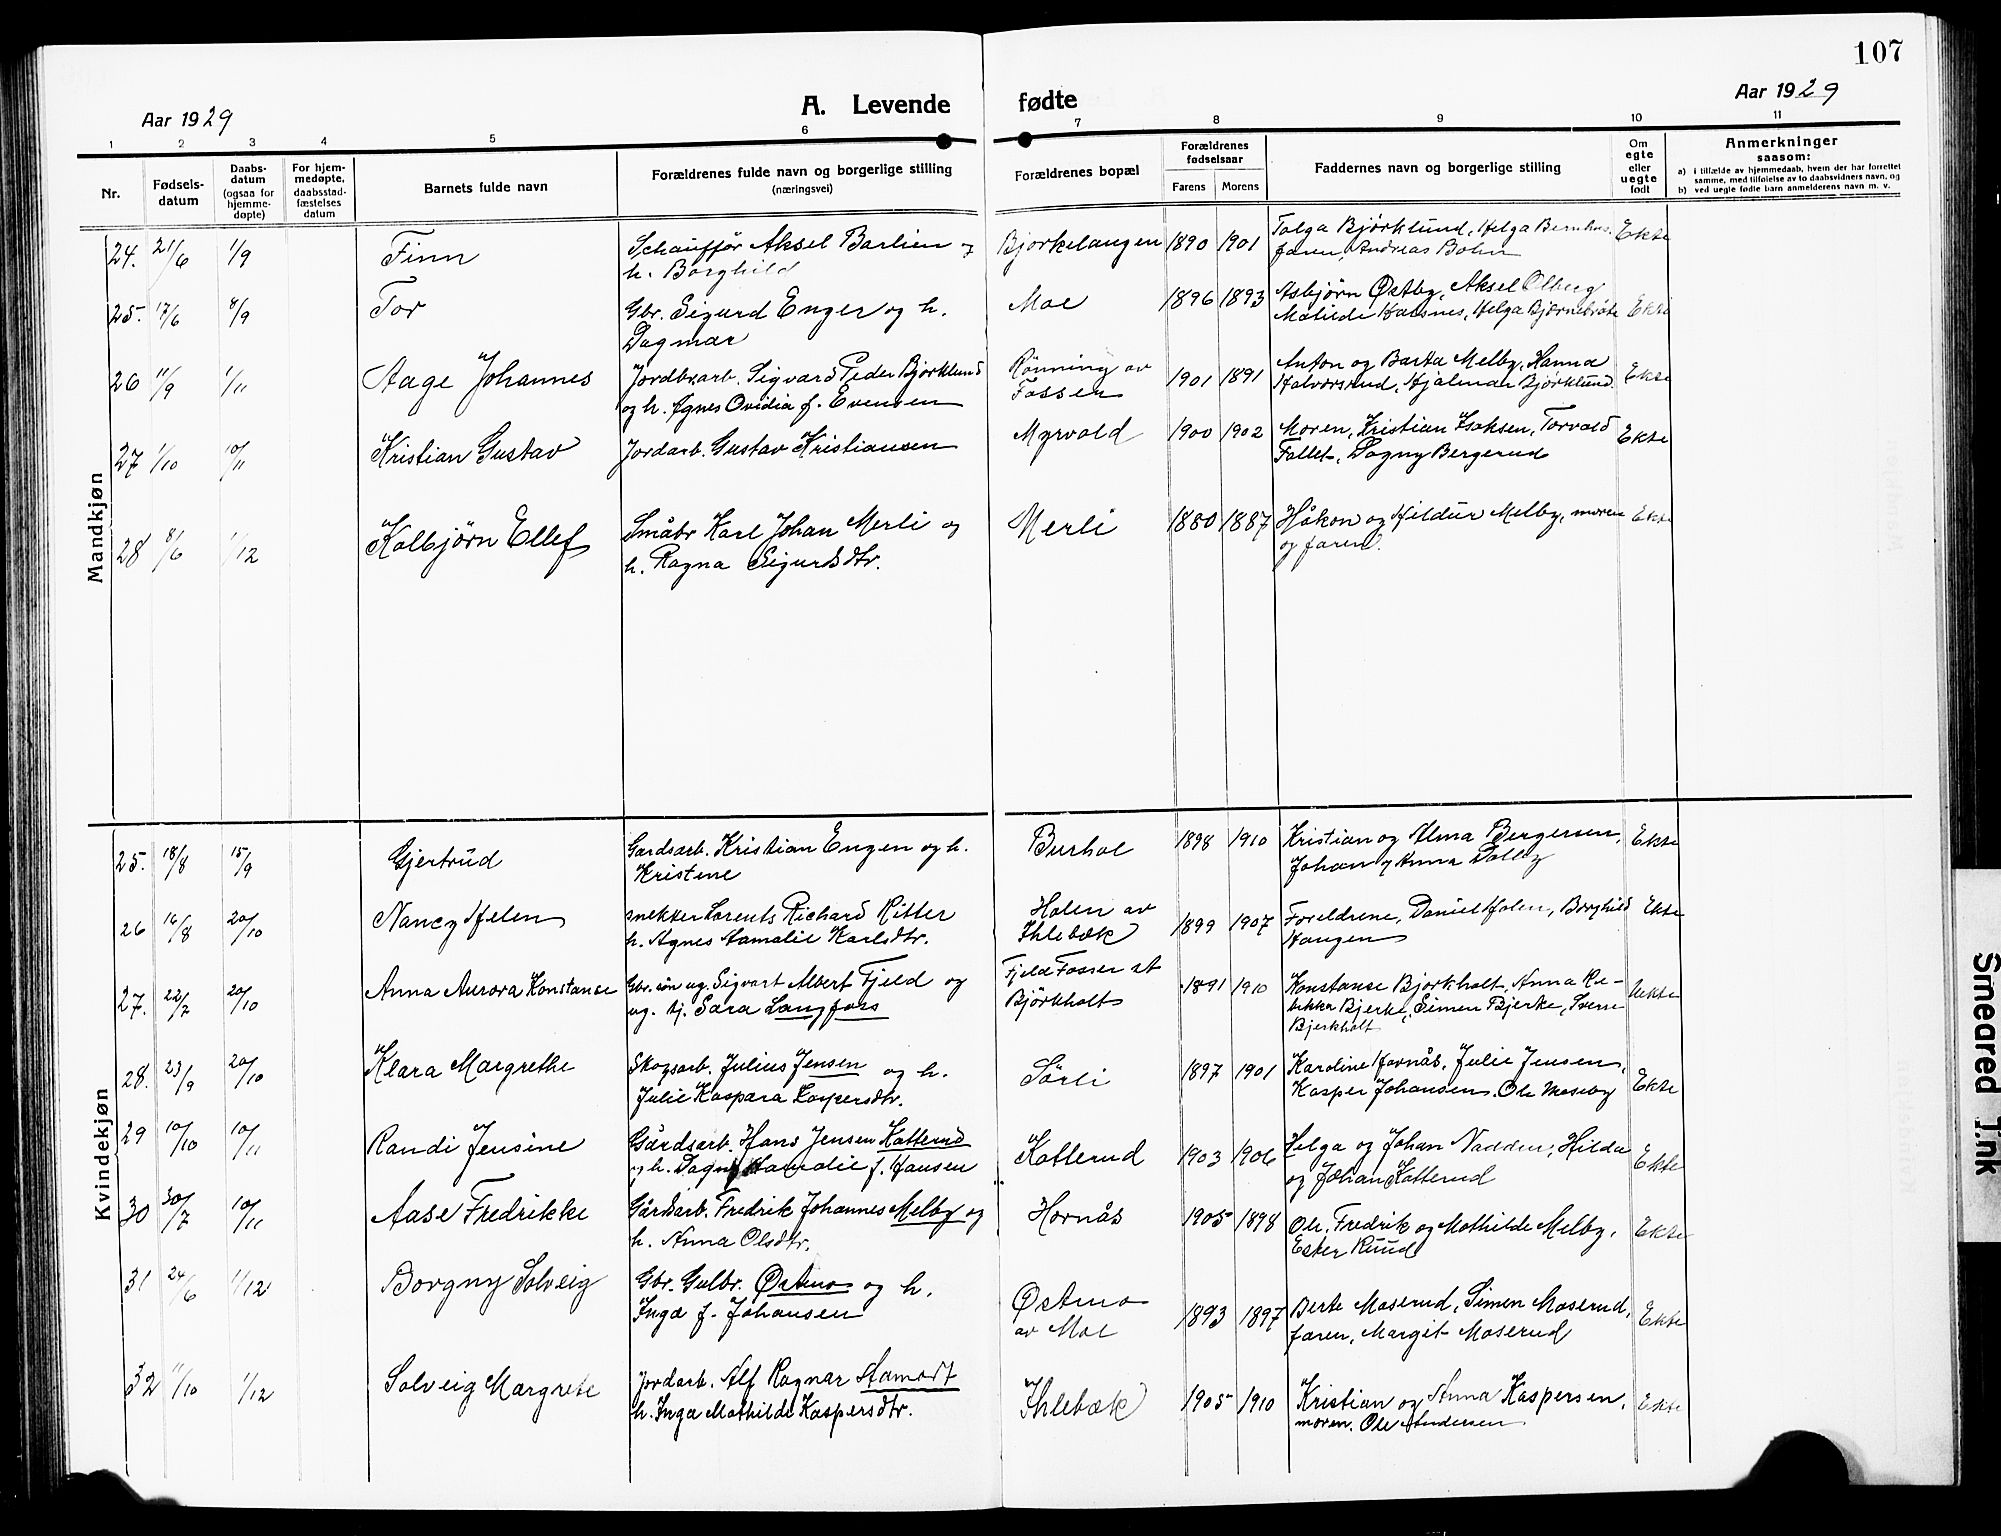 107
Aar 1929
A. Levende fødte
Aar 1929
1 2 3 4 5 6 7 8 9 10 11
Nr.
Fødsels-
datum
Daabs-
datum
(ogsaa for
hjemme-
døpte)
For hjem-
medøpte,
daabsstad-
fæstelses
datum
Barnets fulde navn
Forældrenes fulde navn og borgerlige stilling
(næringsvei)
Forældrenes bopæl
Forældrenes
fødselsaar
Farens Morens
Faddernes navn og borgerlige stilling
Om
egte
eller
uegte
født
Anmerkninger
saasom:
a) i tilfælde av hjemmedaab, hvem der har forrettet
samme, med tilføielse av to daabsvidners navn, og
b) ved uegte fødte barn anmelderens navn m. v.
Mandkjøn
24. 21/6 1/9 Finn Schauffør Aksel Barlien og Bjørkelangen 1890 1901 Tolga Bjørklund, Helga Ekte
h. Borghild faren, Andreas Bohn
25. 17/6 8/9 Tor Gbr. Sigurd Enger og h. Moe 1896 1893 Asbjørn Østby, Aksel Olberg Ekte
Dagmar Matilde Kvesnes, Helga
26 11/9 1/11 Aage Johannes Jordbrarb. Sigvard Peder Bjørklund Rønning av 1901 1891 Anton og Barta Melby, Hanna Ekte
og h. Agnes Ovidia f. Evensen Fosser Halvorsrud, Hjalmar Bjørklund.
27 1/10 10/11 Kristian Gustav Jordarb. Gustav Kristiansen Myrvold 1900 1902 Moren, Kristian Isaksen, Torvald Ekte
Follet, Dagny Bergerud
28 8/6 1/12 Kolbjørn Ellef Småbr Karl Johan Merli og Merli 1880 1887 Håkon og Hildur Melby, moren Ekte
h. Ragna Sigurdsdtr. og faren.
Kvindekjøn
25. 18/8 15/9 Gjertrud Gardsarb. Kristian Engen og h. Burhol 1898 1910 Kristian og Alma Bergersen, Ekte
Kristine Johan og Anna Dalby
26 16/8 20/10 Nancy Helen snekker Lorents Richard Ritter Holen av 1899 1907 Foreldrene, Daniel Holen, Borghild Ekte
h. Agnes Aamalie Karlsdtr. Ihlebæk Haugen
27. 22/7 20/10 Anna Aurora Konstanse Gbr. søn ug. Sigvart Albert Fjeld og Fjeld Fosser at 1891 1910 Konstanse Bjørkholt, Anna Re- Uekte
ug. tj. Sara Langfoss Bjørkholt bekka Bjerke, Simen Bjerke, Sverre
Bjerkholt
28. 23/9 20/10 Klara Margrethe Skogsarb. Julius Jensen og h. Sørli 1897 1901 Karoline Hornås, Julie Jensen, Ekte
Julie Kaspara Kaspersdtr. Kasper Johansen. Ole Moseby
29 10/10 10/11 Randi Jensine Gårdsarb. Hans Jensen Katterud Katterud 1903 1906 Helga og Johan Nadden, Hilda Ekte
og h. Dagny Aamalie f. Hansen og Johan Katterud
30 30/7 10/11 Aase Fredrikke Gårdsarb. Fredrik Johannes Melby og Hornås 1905 1898 Ole, Fredrik og Mathilde Melby, Ekte
h. Anna Olsdtr. Ester Ruud
31 24/6 1/12 Borgny Solveig Gbr. Gulbr. Østmo og h. Østmo 1893 1897 Berte Moserud, Simen Moserud, Ekte
Inga f. Johansen av Moe faren, Margit Moserud
32 11/10 1/12 Solveig Margrete Jordarb. Alf Ragnar Aamodt Ihlebæk 1905 1910 Kristian og Anna Kaspersen, Ekte
h. Inga Mathilde Kaspersdtr. moren, Ole Andersen
Smeared Ink